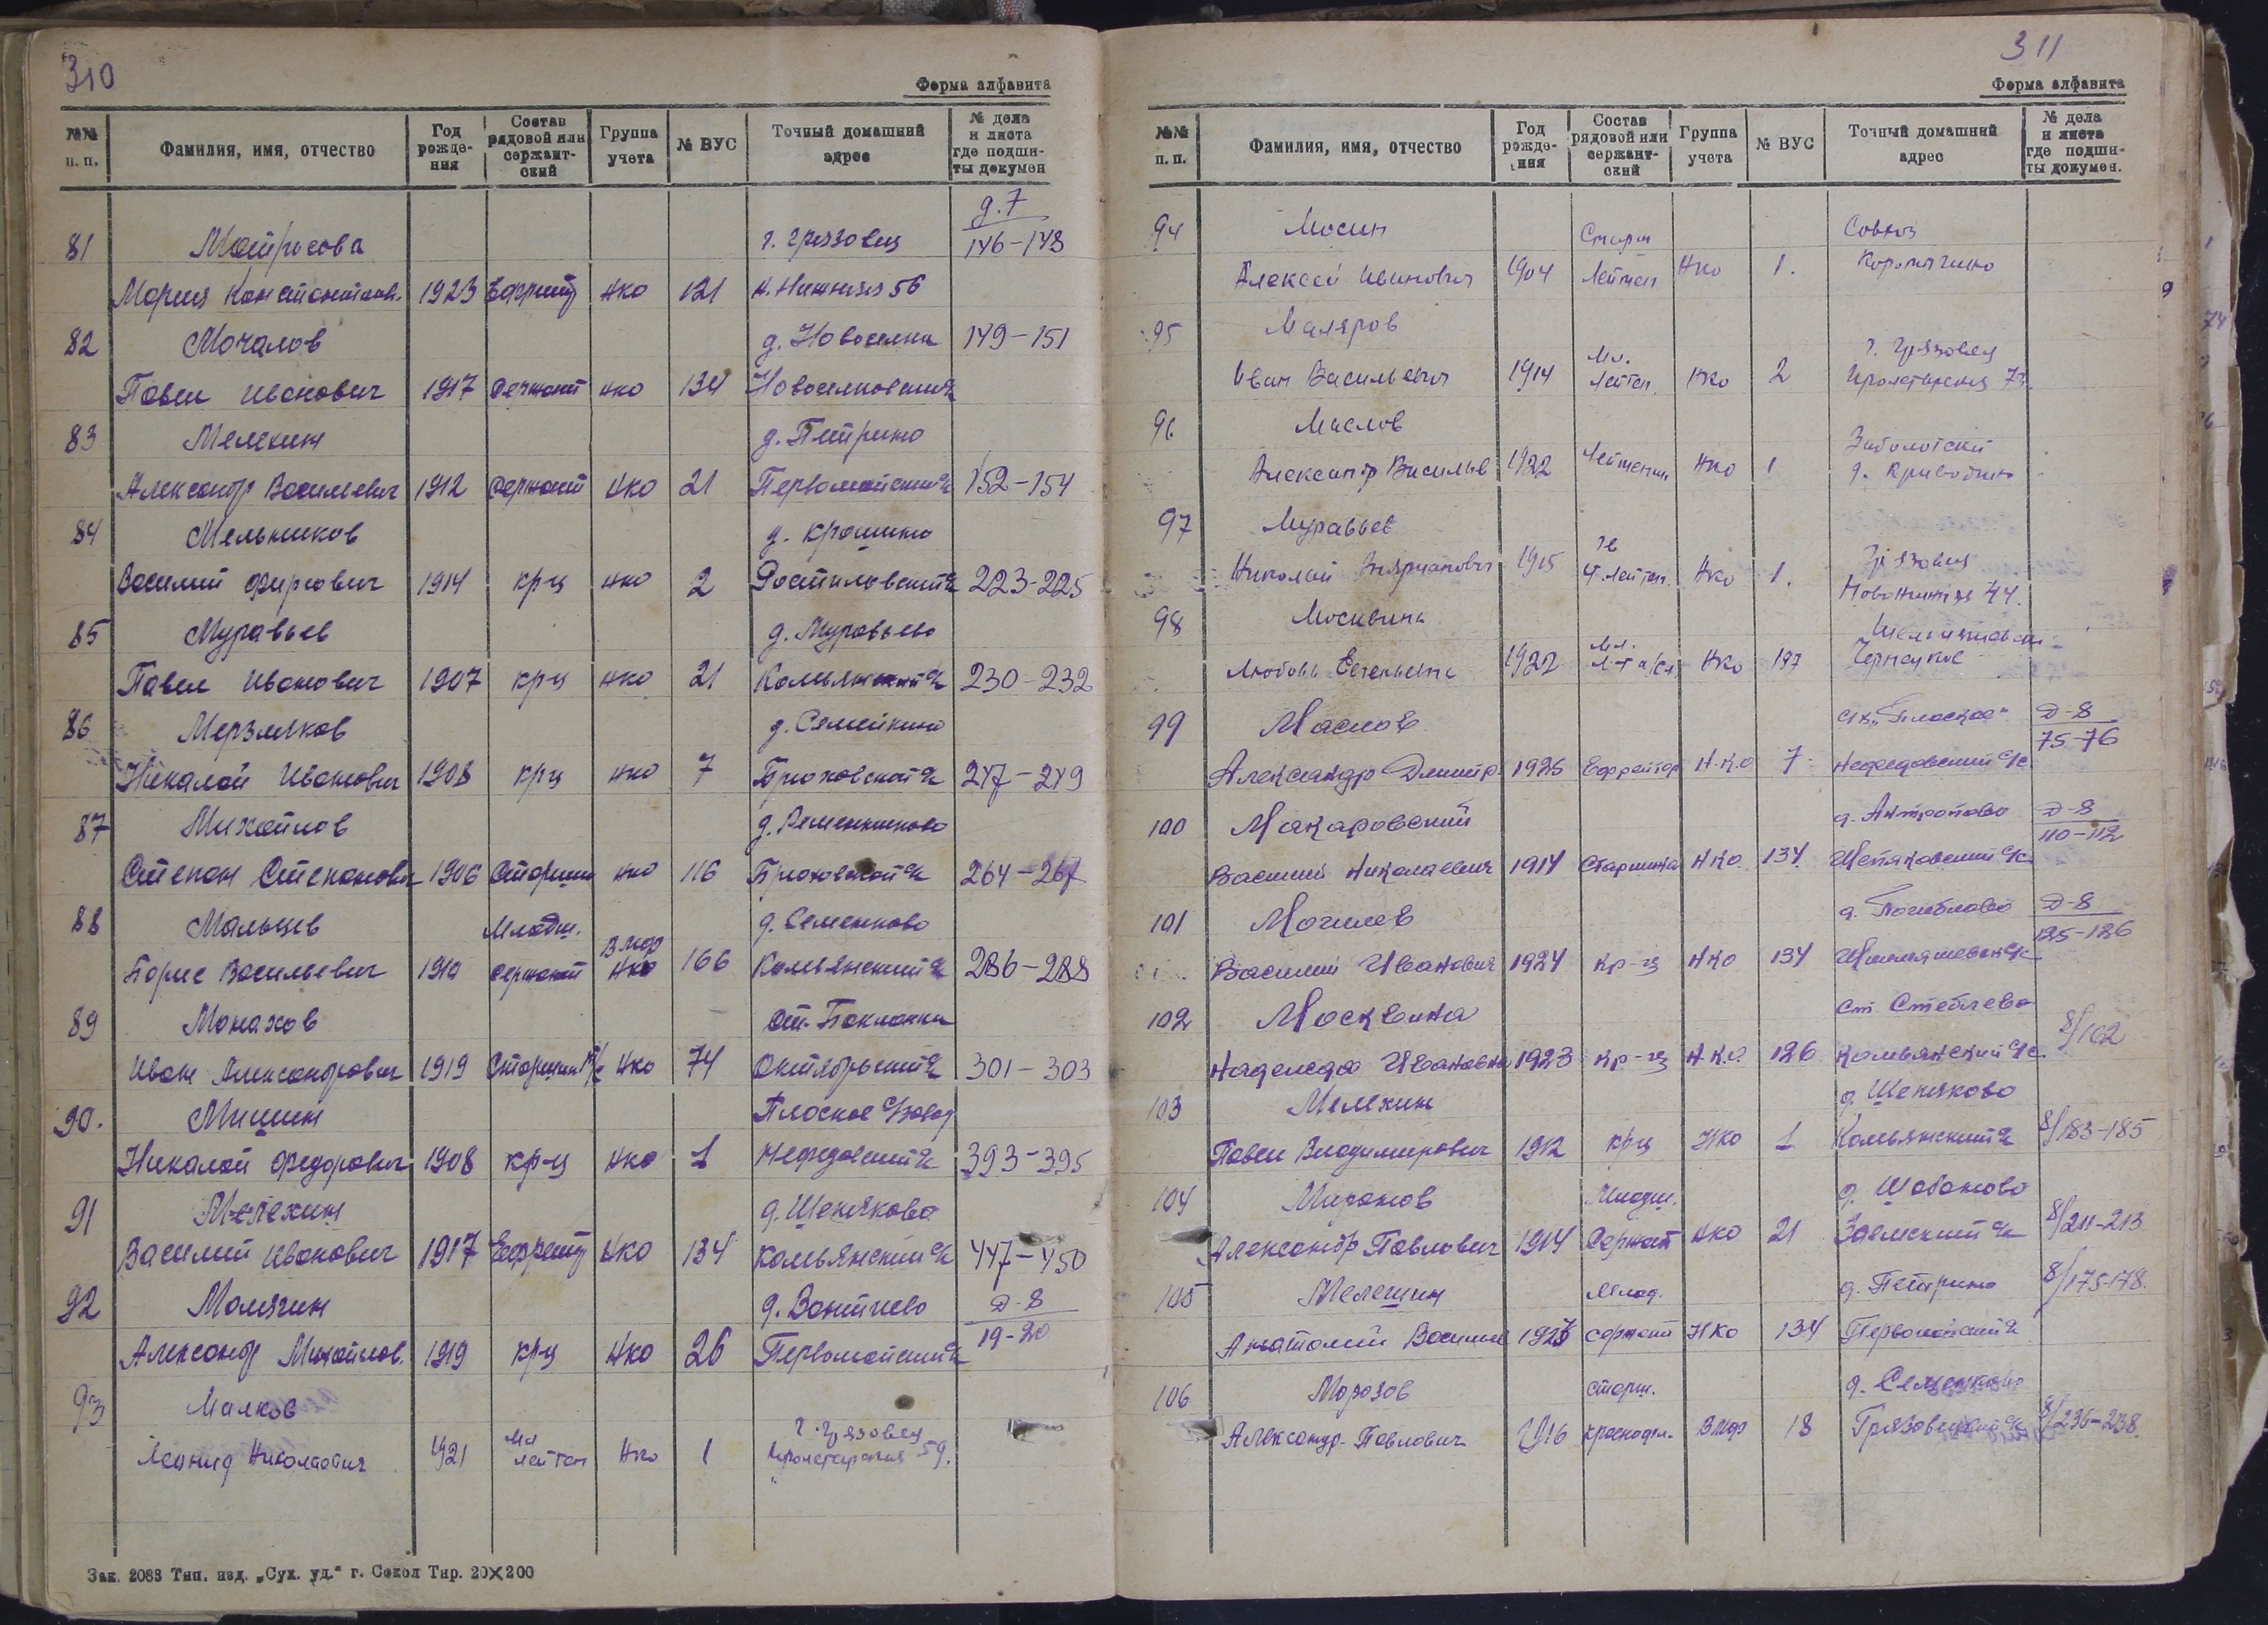 310
Форма алфавита
№№ п. п. Фамилия, имя, отчество Год рожде-ния Состав рядовой или сержант-ский Группа учета № ВУС Точный домашний адрес № дела и листа где подши-ты докумен
д. 7
81 Матросова г. Грязовец 146-148
Мария Константинов. 1923 Ефрейт НКО 121 Н. Нижняя 56
82 Мочалов д. Новоселки 149-151
Павел Иванович 1917 Сержант НКО 134 Новоселковский
83 Мелехин д. Петрино
Александр Васильевич 1912 Сержант НКО 21 Первомайский с/с 152-154
84 Мельников д. Крошино
Василий Фирсович 1914 кр-ц НКО 2 Ростиловский с/с 223-225
85 Муравьев д. Муравьево
Павел Иванович 1907 кр-ц НКО 21 Комьянский с/с 230-232
86 Мерзляков д. Семейкино
Николай Иванович 1908 кр-ц НКО 7 Брюховской с/с 247-249
87 Михайлов д. Семенниково
Степан Степанович 1906 Старшин НКО 116 Брюховской с/с 264-267
88 Мальцев Младш. д. Семенково
ВМФ
Борис Васильевич 1910 сержант НКО 166 Комьянский с/с 286-288
89 Монахов ст. Бакланки
Иван Александрович 1919 Старшин НКО 74 Октябрьский с/с 301-303
90. Мишин Плоское с/завод
Николай Федорович 1908 кр-ц НКО 1 Нефедовский с/с 393-395
91 Мелехин д. Шепяково
Василий Иванович 1917 Ефрейт НКО 134 Комьянский с/с 447-450
92 Молягин д. Вонтчево Д-8
Александр Михайлов. 1919 кр-ц НКО 26 Первомайский с/с 19-20
93 Малков г. Грязовец
Леонид Николаевич 1921 Мл лейтен НКО 1 Пролетарская 59.
Зак. 2083 Тип. изд. „Сух. уд.“ г. Сокол Тир. 20×200
311
Форма алфавита
№№ п. п. Фамилия, имя, отчество Год рожде-ния Состав рядовой или сержант-ский Группа учета № ВУС Точный домашний адрес № дела и листа где подши-ты докумен.
94 Мосин Старш Союз
Алексей Иванович 1904 Лейтен НКО 1. Коромыгино
95 Маляров Мл. г. Грязовец
Иван Васильевич 1914 Лейтен. НКО 2 Пролетарская 73.
96 Маслов Заболотский
Александр Василье 1922 Лейтенан НКО 1 д. Криводино
97 Муравьев Грязовец
Николай 1915 Лейтен. НКО 1. Новонижняя 44.
98 Москвина
Любовь Евгеньевна 1922 Мл. НКО 197
99 Маслов „Плоское“ Д-8
75-76
Александр Дмитр. 1925 Ефрейтор Н.К.О 7 Нефедовский с/с
100 Макаровский д. Антропово Д-8
110-112
Василий Николаевич 1914 Старшина НКО. 134 Шепяковский с/с
101 Могилев д. Погиблово Д-8
125-126
Василий Иванович 1924 Кр-ц НКО 134
102 Москвина ст. Стеблево
8/102
Надежда Ивановна 1923 Кр-ц Н.К.О. 126 Комьянский с/с.
103 Мелехин д. Шепяково
Павел Владимирович 1912 кр-ц НКО 1 Комьянский с/с 8/183-185
104 Миронов Младш. д. Шабаново
Александр Павлович 1914 Сержант НКО 21 Заемский с/с 8/211-213
105 Мелешин Млад. д. Петрино 8/175-178.
Анатолий Василье 1925 сержант НКО 134 Первомайский с/с
106 Морозов старш. д. Семенково
Александр Павлович 1916 краснофл. ВМФ 18 Грязовецкий с/с 8/236-238.